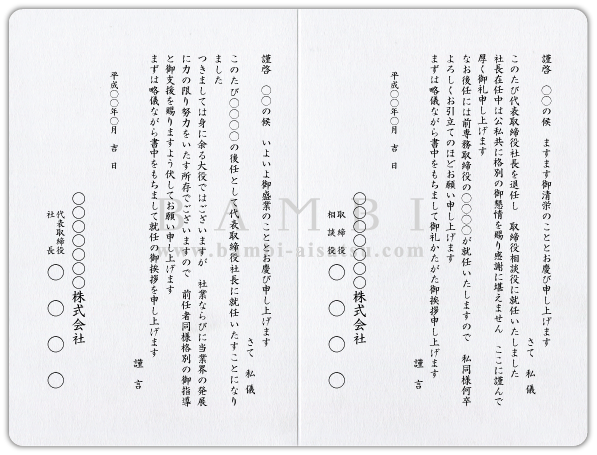 謹啓　〇〇の候　ますます御清栄のこととお慶び申し上げます
さて　私儀
このたび代表取締役社長を退任し　取締役相談役に就任いたしました
社長在任中は公私共に格別の御懇情を賜り感謝に堪えません　ここに謹んで
厚く御礼申し上げます
なお後任には前専務取締役の〇〇〇〇が就任いたしますので　私同様何卒
よろしくお引立てのほどお願い申し上げます
まずは略儀ながら書中をもちまして御礼かたがた御挨拶申し上げます
謹言
平成〇〇年〇月　吉　日
〇〇〇〇〇〇〇株式会社
取締役
相談役
〇〇〇〇
謹啓　〇〇の候　いよいよ御盛業のこととお慶び申し上げます
さて　私儀
このたび〇〇〇〇の後任として代表取締役社長に就任いたすことになり
ました
つきましては身に余る大役ではございますが　社業ならびに当業界の発展
に力の限り努力をいたす所存でございますので　前任者同様格別の御指導
と御支援を賜りますよう伏してお願い申し上げます
まずは略儀ながら書中をもちまして就任の御挨拶を申し上げます
謹言
平成〇〇年〇月　吉　日
〇〇〇〇〇〇〇株式会社
代表取締役
社長
〇〇〇〇
BAMBI
www.bambi-aisatsu.com